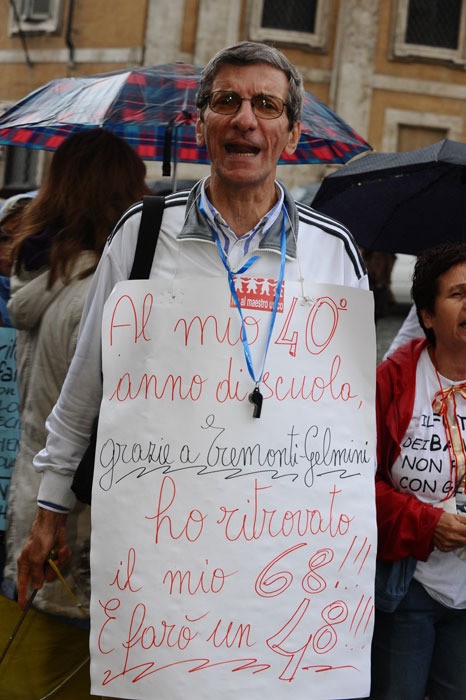 al maestro unico
Al mio 40°
anno di scuola,
grazie a Tremonti-Gelmini
ho ritrovato
il mio 68!!!
E farò un 48!!!
dei BA
NON
CON GE